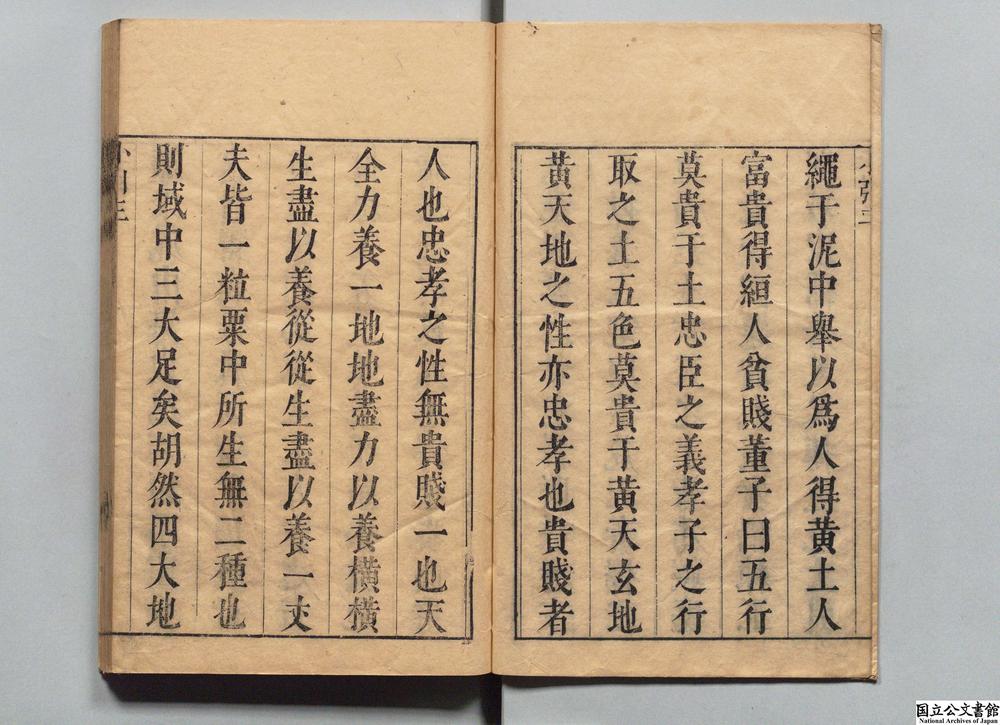 繩于泥中舉以爲人得黄土人
富貴得絙人貧賤董子曰五行
莫貴于土忠臣之義孝子之行
取之土五色莫貴于黄天玄地
黄天地之性亦忠孝也貴賤者
人也忠孝之性無貴賤一也天
全力養一地地盡力以養橫橫
生盡以養從從生盡以養一丈
夫皆一粒粟中所生無二種也
則域中三大足矣胡然四大地
国立公文書館
National Archives of Japan